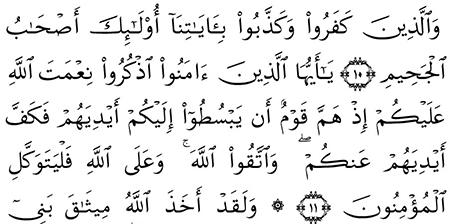 وَٱلَّذِينَ كَفَرُوا۟ وَكَذَّبُوا۟ بِـَٔايَٰتِنَآ أُو۟لَٰٓئِكَ أَصْحَٰبُ
ٱلْجَحِيمِ ۝١٠ يَٰٓأَيُّهَا ٱلَّذِينَ ءَامَنُوا۟ ٱذْكُرُوا۟ نِعْمَتَ ٱللَّهِ
عَلَيْكُمْ إِذْ هَمَّ قَوْمٌ أَن يَبْسُطُوٓا۟ إِلَيْكُمْ أَيْدِيَهُمْ فَكَفَّ
أَيْدِيَهُمْ عَنكُمْ ۖ وَٱتَّقُوا۟ ٱللَّهَ ۚ وَعَلَى ٱللَّهِ فَلْيَتَوَكَّلِ
ٱلْمُؤْمِنُونَ ۝١١ ۞ وَلَقَدْ أَخَذَ ٱللَّهُ مِيثَٰقَ بَنِىٓ